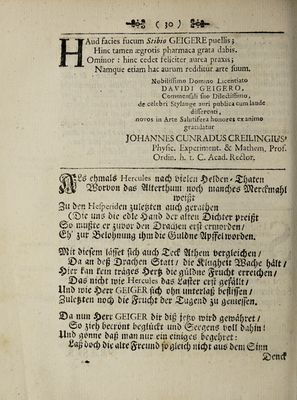 ( 30 )
HAud facies fucum Stibio GEIGERE puellis;
Hinc tamen ægrotis pharmaca grata dabis.
Ominor: hinc cedet feliciter aurea praxis;
Namque etiam hac aurum redditur arte suum.
Nobilissimo Domino Licentiato
DAVIDI GEIGERO,
Commensali suo Dilectissimo,
de celebri Stylangæ auri publica cum laude
differenti,
novos in Arte Salutifera honores ex animo
gratulatur
JOHANNES CUNRADUS CREILINGIUS
Physic. Experiment. & Mathem. Prof.
Ordin. h. t. C. Acad. Rector.
ALs ehmals Hercules nach vielen Helden-Thaten
Worvon das Alterthum noch manches Merckmahl
weißt
Zu den Hesperiden zuletzten auch gerathen
(Die uns die edle Hand der alten Dichter preißt
So mußte er zuvor den Drachen erst ermorden/
Eh' zur Belohnung ihm die Guldne Apffel worden.
Mit diesem lässet sich auch Teck Athem vergleichen/
Da an deß Drachen Statt die Klugheit Wache hält/
Hier kan kein träges Hertz die güldne Frucht erreichen/
Das nicht wie Hercules das Laster erst gefällt/
Und wie Herr GEIGER sich ohn unterlaß beflissen/
Zuletzten noch die Frucht der Tugend zu geniessen.
Da nun Herr GEIGER dir diß jetzo wird gewähret/
So zieh becrönt beglückt und Seegens voll dahin!
Und gönne daß man nur ein einiges begehret:
Laß doch die alte Freund so gleich nicht aus dem Sinn
Denck